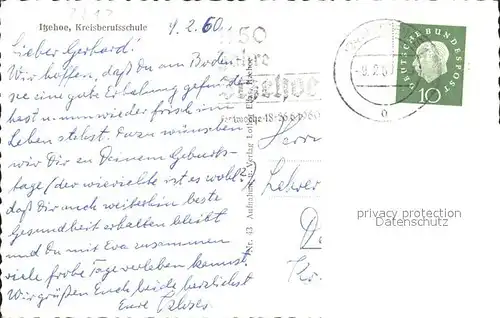 Itzehoe, Kreisberufsschule
4.2.60
Lieber Gerhard!
Wir hoffen, daß Du am Boden-
see eine gute Erholung gefunden
hast u. nun wieder frisch im
Leben stehst. Dazu wünschen
wir Dir zu Deinem Geburts-
tage (der wievielte ist es wohl?),
daß Dir auch weiterhin beste
Gesundheit erhalten bleibt
und Du mit Eva zusammen
viele frohe Tage verleben kannst.
Wir grüßen Euch beide herzlichst
Eure
Nr. 43 Aufnahme u. Verlag Itzehoe
Jahre
Itzehoe
1960
DEUTSCHE BUNDESPOST
10
Herrn
Lehrer
Kr.
privacy protection
Datenschutz